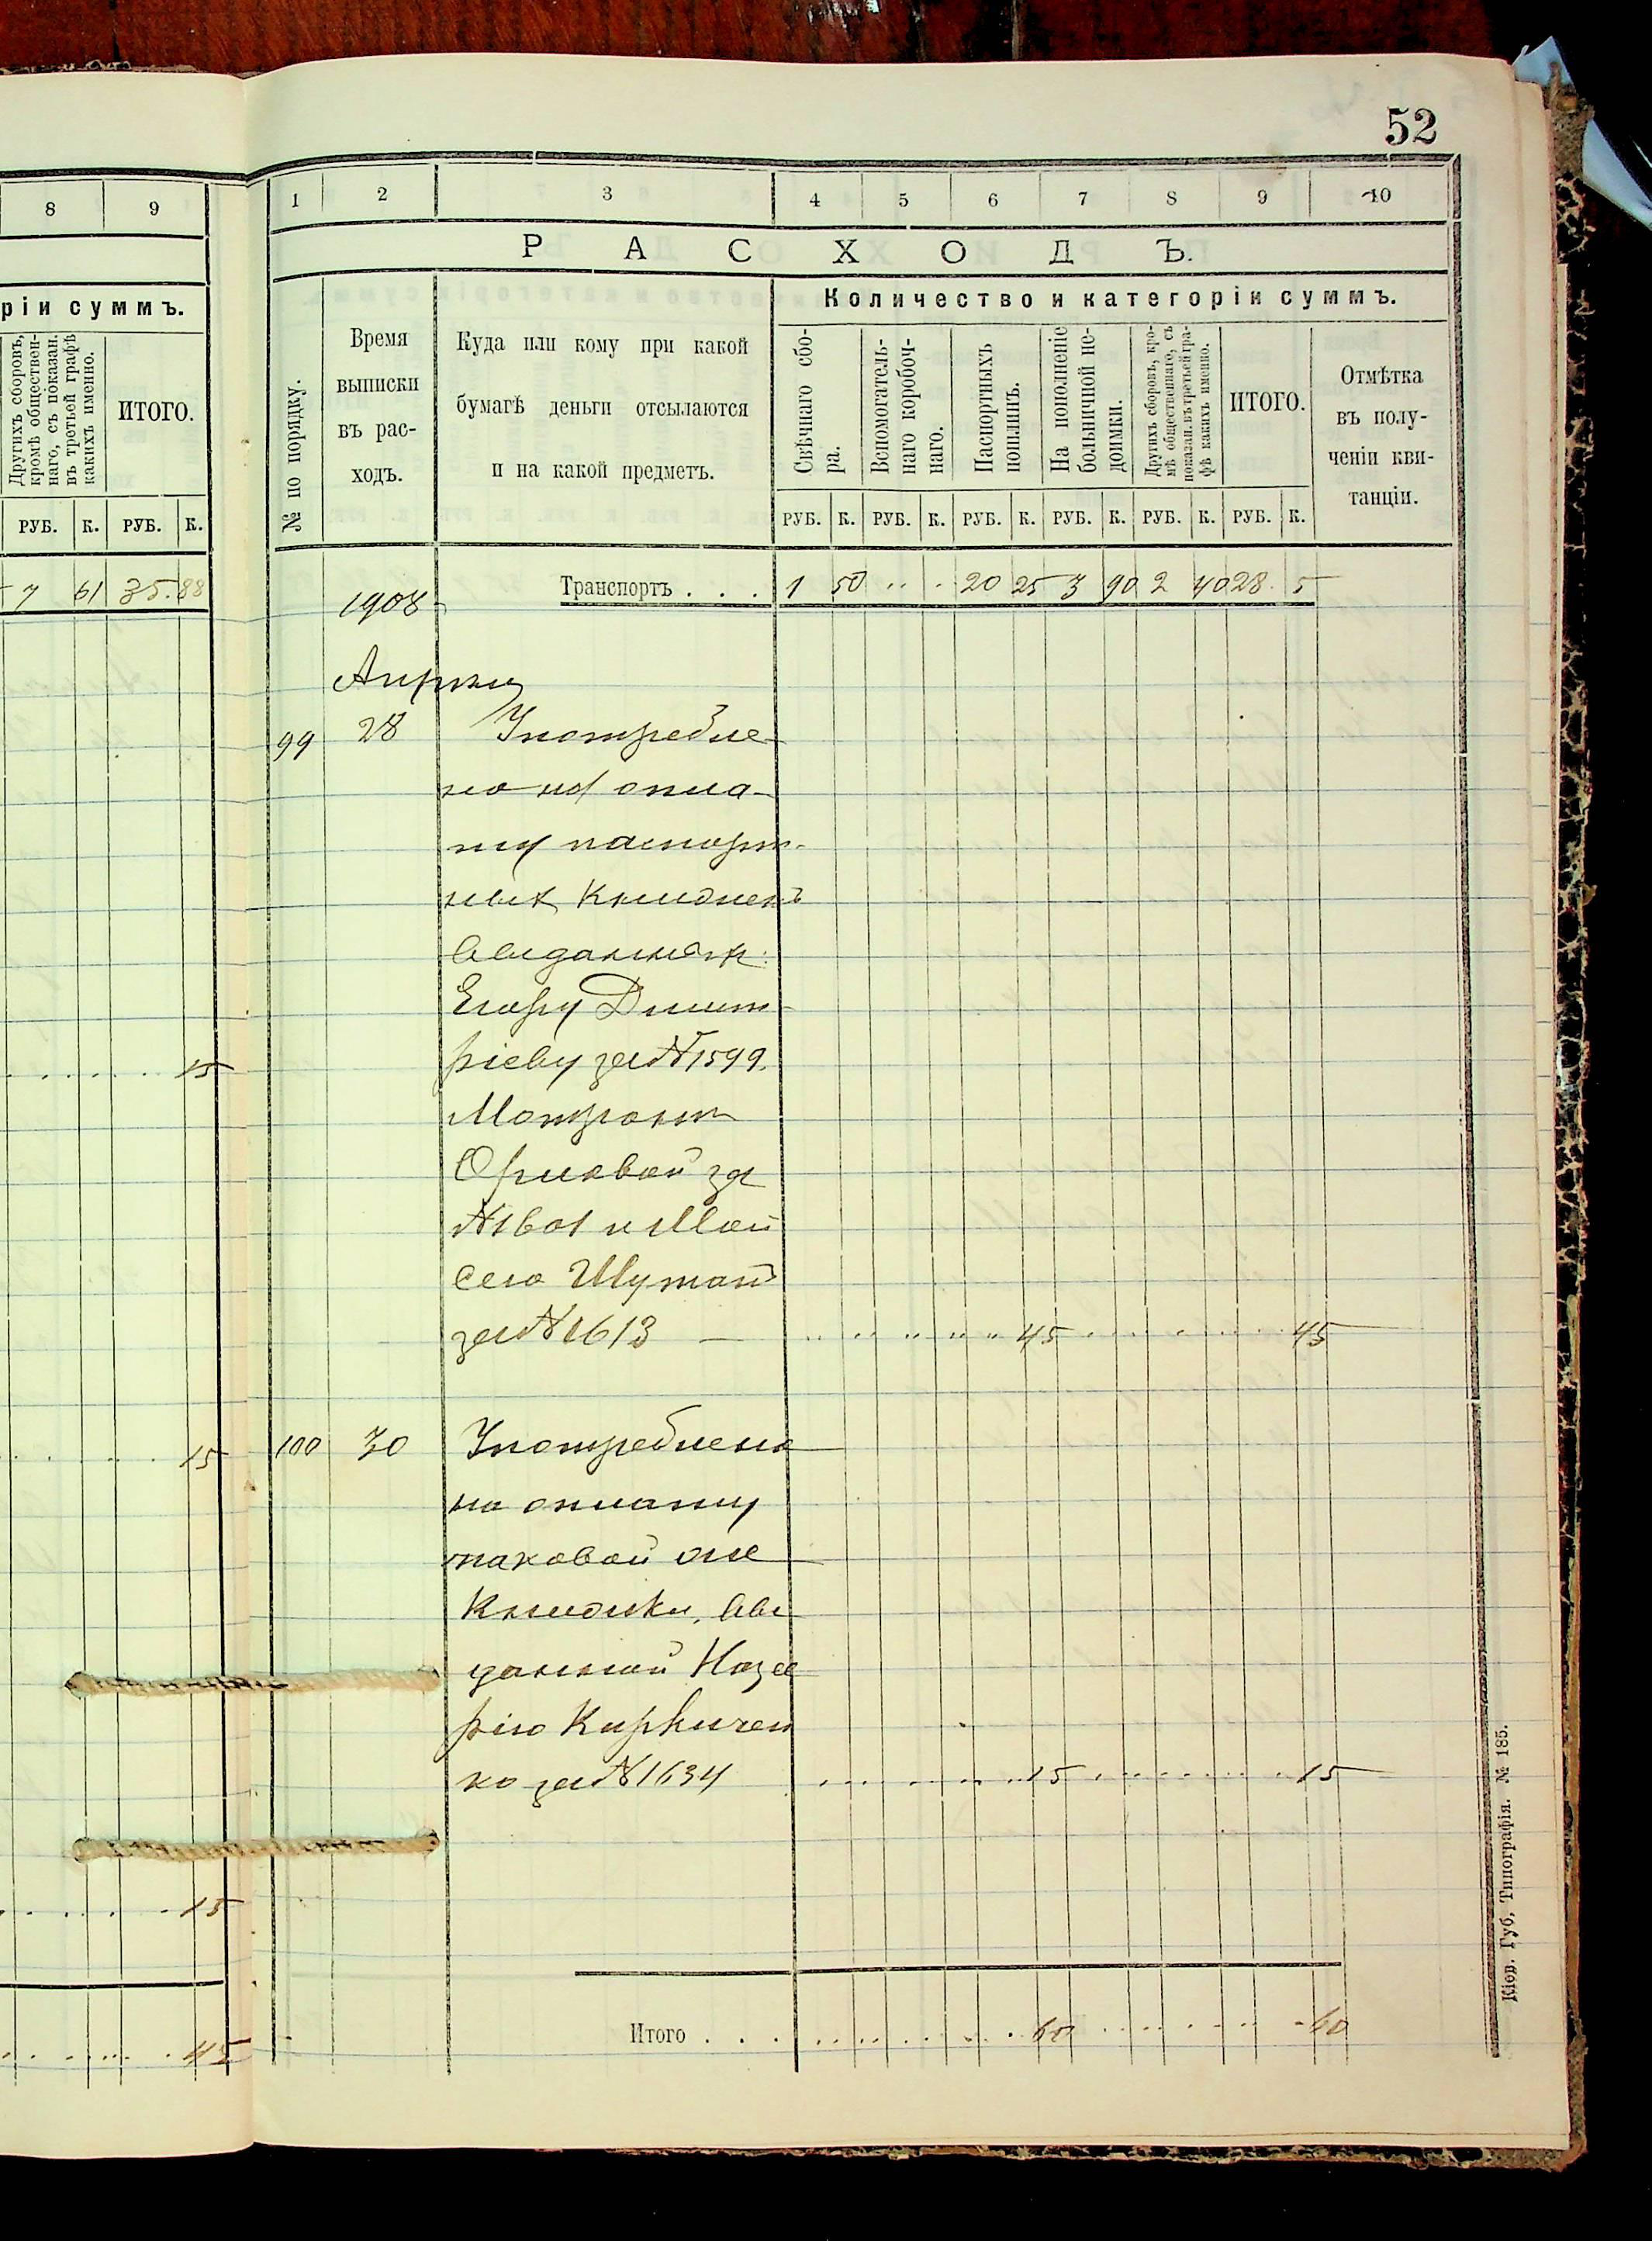 52
8 9
ріи суммъ.
Другихъ сборовъ,
кромѣ обществен-
наго, съ показан.
въ третьей графѣ
какихъ именно.
ИТОГО.
РУБ. К. РУБ. К.
7 61 35. 88
15
15
15
45
1 2 3 4 5 6 7 8 9 10
РАСХОДЪ.
№ по порядку.
Время
выписки
въ рас-
ходъ.
Куда или кому при какой
бумагѣ деньги отсылаются
и на какой предметъ.
Количество и категоріи суммъ.
Свѣчнаго сбо-
ра.
Вспомогатель-
наго коробоч-
наго.
Паспортныхъ
пошлинъ.
На пополненіе
больничной не-
доимки.
Другихъ сборовъ, кро-
мѣ общественнаго, съ
показан. въ третьей гра-
фѣ какихъ именно.
ИТОГО.
Отмѣтка
въ полу-
ченіи кви-
танціи.
РУБ. К. РУБ. К. РУБ. К. РУБ. К. РУБ. К. РУБ. К.
Транспортъ . . . 1 50 20 25 3 90 2 40 28 5
1908
99 28 Употребле-
но на опла-
ту паспорт-
ныхъ книжекъ
Егору Дмит-
ріеву за № 1599.
Матронѣ
Орловой за
№ 1601 и Мой
сею Шуман
за № 1613 — 45 45
100 30 Употреблено
на оплату
таковой же
книжки, вы
данной Наза
рію Кириченко
ко за № 1634 15 15
Итого . . . 60 60
Кіев. Губ. Типографія. № 185.